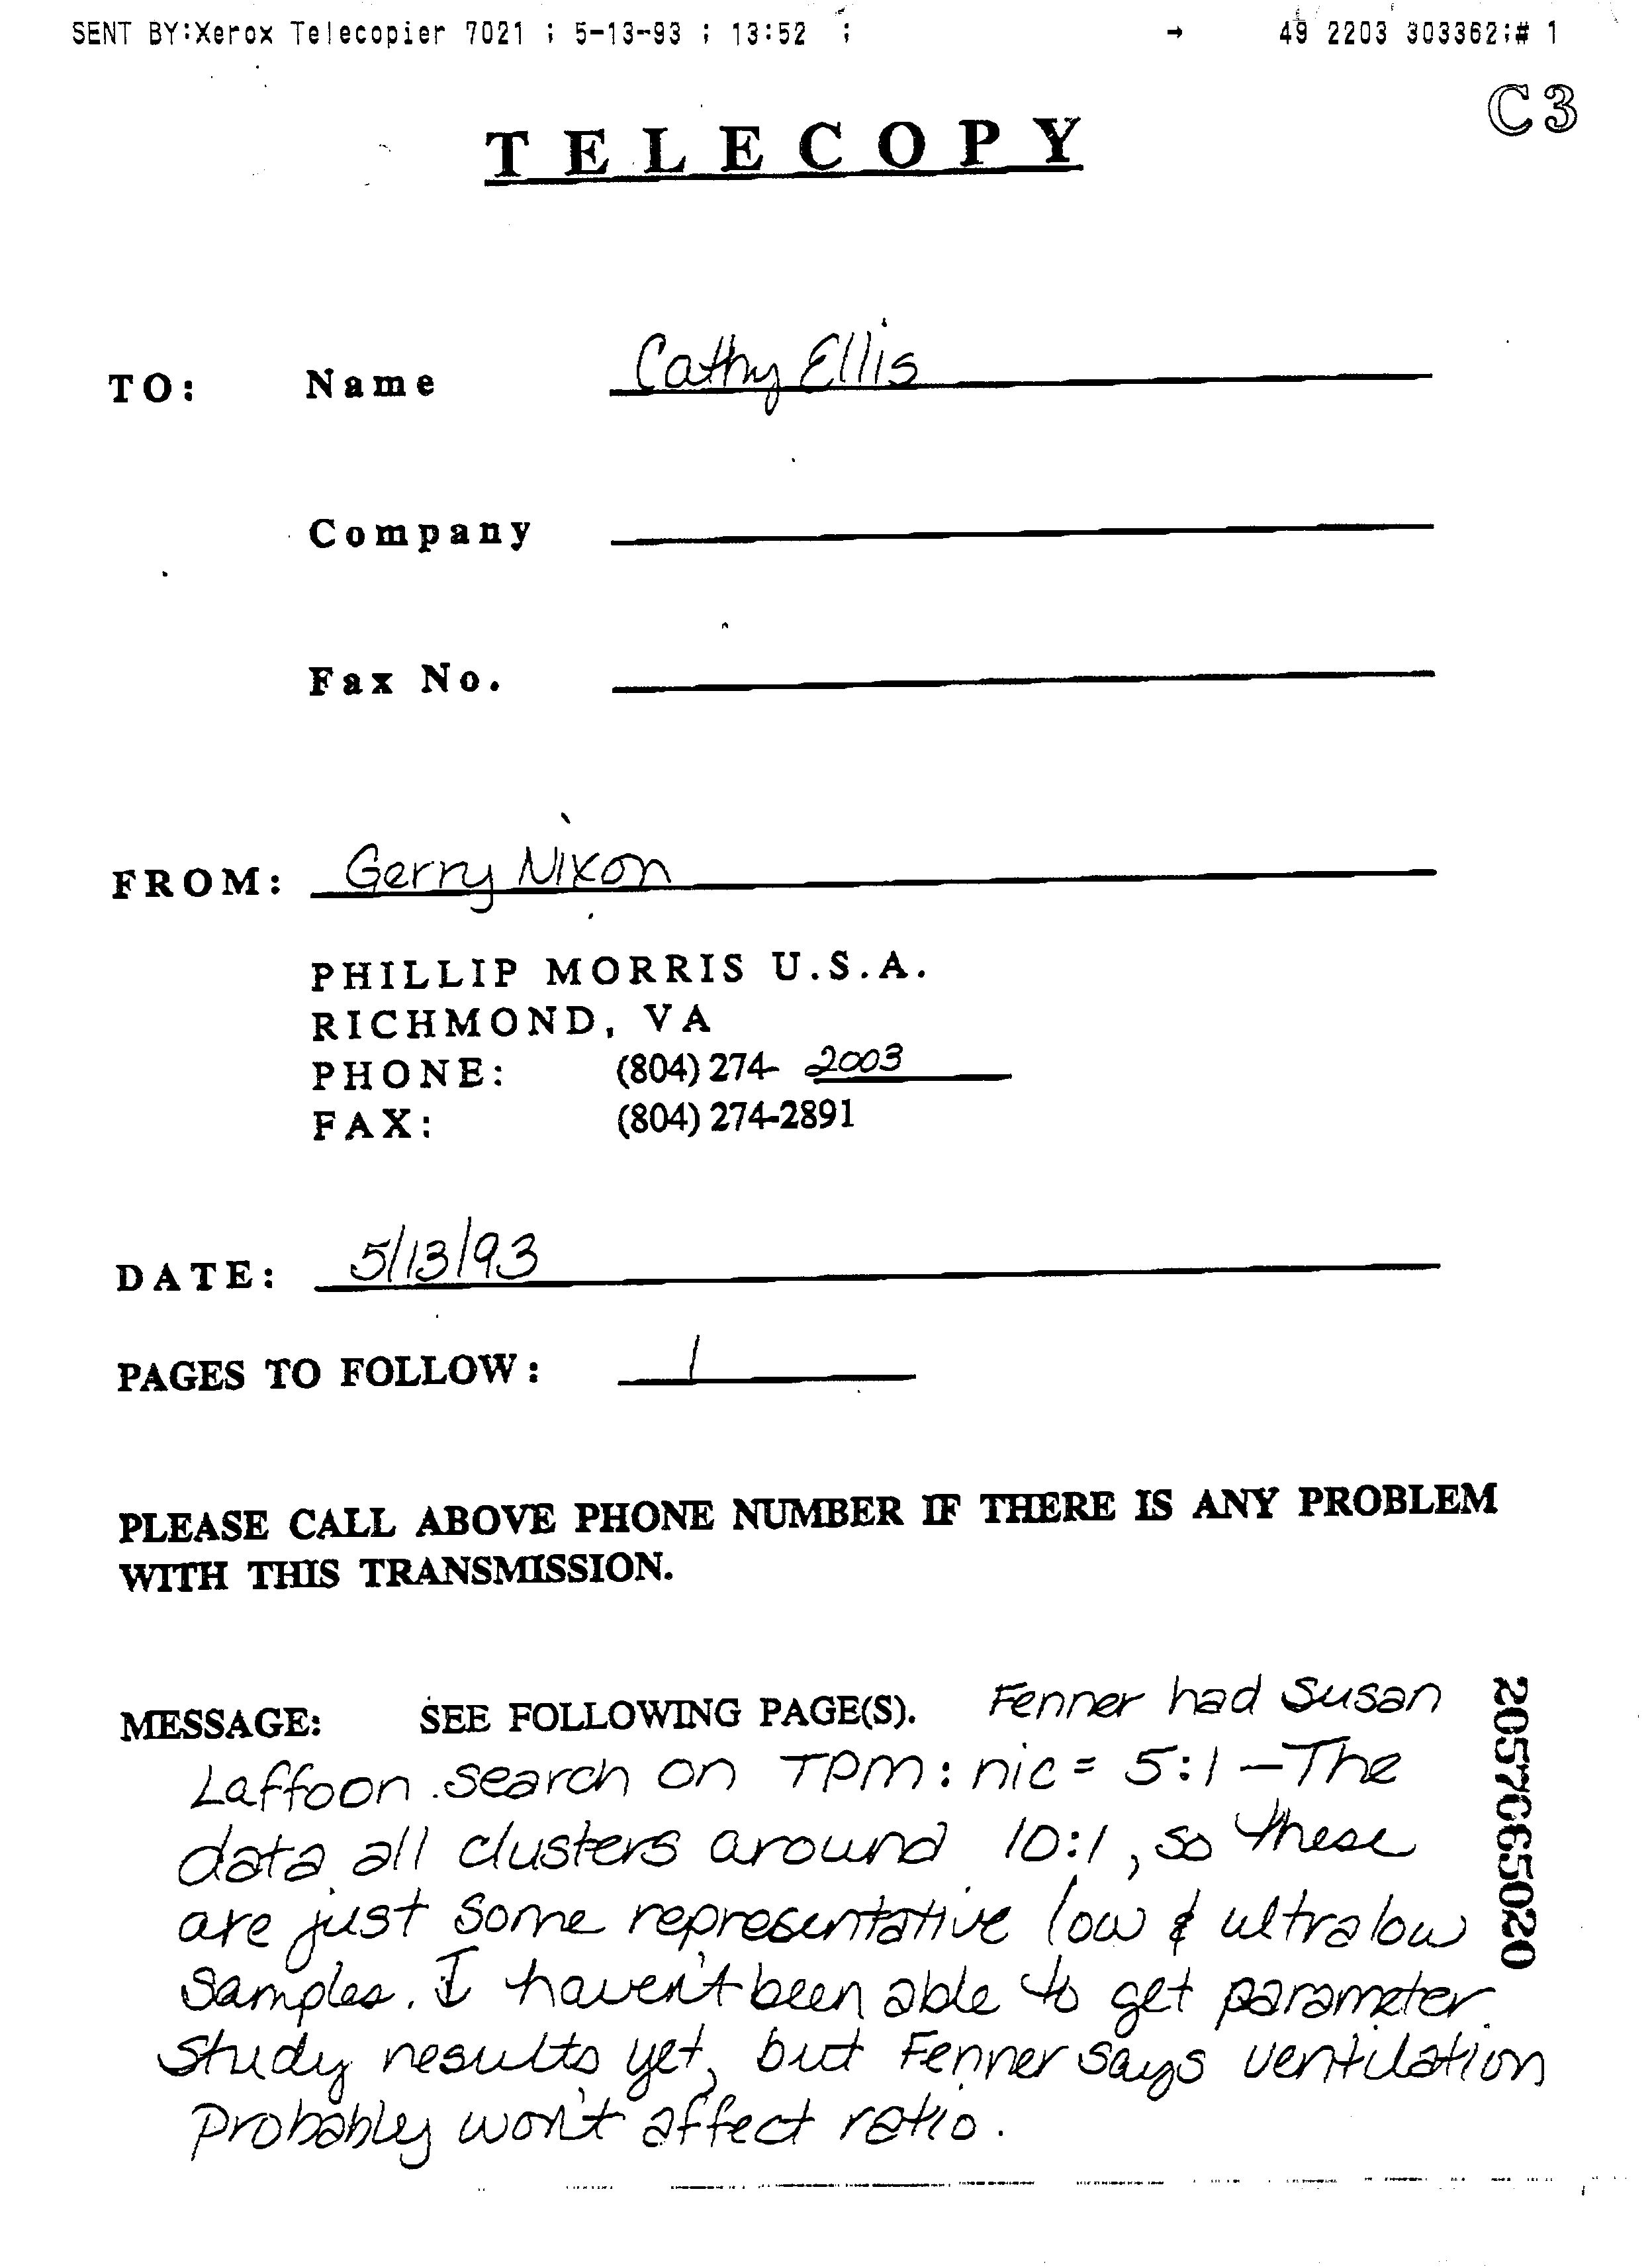 SENT BY:Xerox Telecopier 7021 ; 5-13-93 ; 13:52 ; → 49 2203 303362;# 1
C3
TELECOPY
TO: Name Cathy Ellis
Company
Fax No.
FROM: Gerry Nixon
PHILLIP MORRIS U.S.A.
RICHMOND, VA
PHONE: (804) 274- 2003
FAX: (804) 274-2891
DATE: 5/13/93
PAGES TO FOLLOW: 1
PLEASE CALL ABOVE PHONE NUMBER IF THERE IS ANY PROBLEM
WITH THIS TRANSMISSION.
MESSAGE: SEE FOLLOWING PAGE(S). Fenner had Susan
Laffoon search on TPM: nic = 5:1 – The
data all clusters around 10:1, so these
are just some representative low & ultralow
samples. I haven't been able to get parameter
study results yet, but Fenner says ventilation
probably won't affect ratio.
2057065020